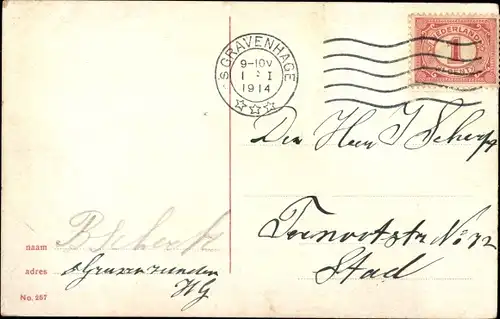 'S GRAVENHAGE
9-10V
1 I
1914
NEDERLAND
1
CENT
Den Heer J Scherp
No 32
Stad
naam B Scherp
adres
HG
No. 257